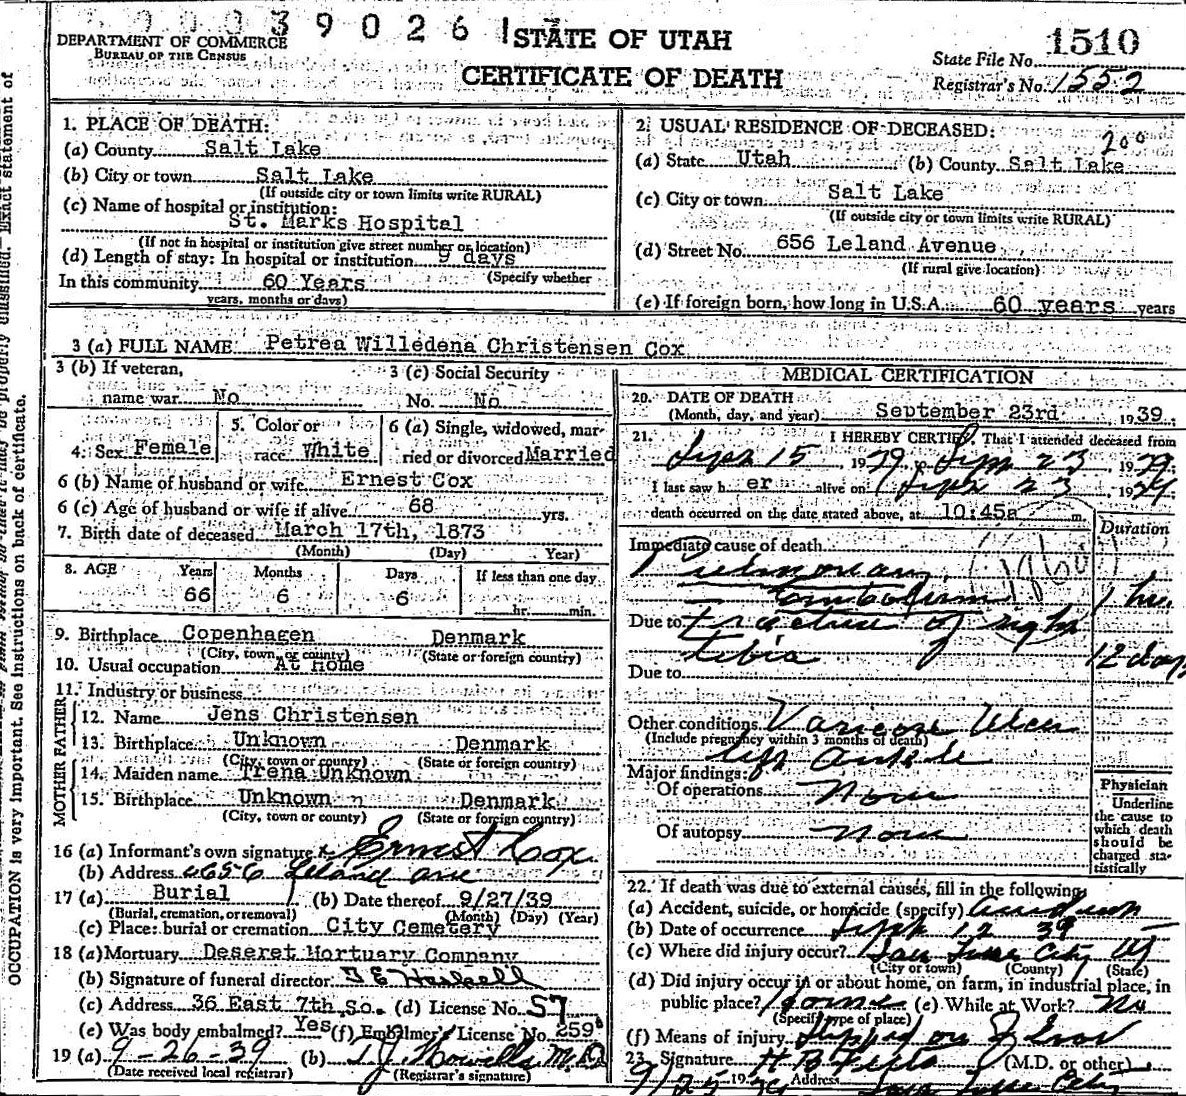 39026
STATE OF UTAH
CERTIFICATE OF DEATH
DEPARTMENT OF COMMERCE
BUREAU OF THE CENSUS
State File No. 1510
Registrar's No. 1552
1. PLACE OF DEATH:
(a) County Salt Lake
(b) City or town Salt Lake
(If outside city or town limits write RURAL)
(c) Name of hospital or institution:
St. Marks Hospital
(If not in hospital or institution give street number or location)
(d) Length of stay: In hospital or institution 9 days
(Specify whether
In this community 60 Years
years, months or days)
2. USUAL RESIDENCE OF DECEASED:
200
(a) State Utah (b) County Salt Lake
(c) City or town Salt Lake
(If outside city or town limits write RURAL)
(d) Street No. 656 Leland Avenue
(If rural give location)
(e) If foreign born, how long in U.S.A. 60 years years
3 (a) FULL NAME Petrea Willedena Christensen Cox
3 (b) If veteran,
name war No
3 (c) Social Security
No. No
4. Sex Female
5. Color or
race White
6 (a) Single, widowed, mar-
ried or divorced Married
6 (b) Name of husband or wife Ernest Cox
6 (c) Age of husband or wife if alive 68 yrs.
7. Birth date of deceased March 17th, 1873
(Month) (Day) Year)
8. AGE Years Months Days If less than one day
66 6 6 hr. min.
9. Birthplace Copenhagen Denmark
(City, town, or county) (State or foreign country)
10. Usual occupation At Home
11. Industry or business
FATHER
12. Name Jens Christensen
13. Birthplace Unknown Denmark
(City, town or county) (State or foreign country)
MOTHER
14. Maiden name Trena Unknown
15. Birthplace Unknown Denmark
(City, town or county) (State or foreign country)
16 (a) Informant's own signature Ernest Cox
(b) Address 656 Leland ave
17 (a) Burial (b) Date thereof 9/27/39
(Burial, cremation, or removal) (Month) (Day) (Year)
(c) Place: burial or cremation City Cemetery
18 (a) Mortuary Deseret Mortuary Company
(b) Signature of funeral director
(c) Address 36 East 7th So. (d) License No. 57
(e) Was body embalmed? Yes (f) Embalmer's License No. 259
19 (a) 9-26-39 (b) T.J. Howells M.D.
(Date received local registrar) (Registrar's signature)
MEDICAL CERTIFICATION
20. DATE OF DEATH
(Month, day, and year) September 23rd, 1939.
21. I HEREBY CERTIFY, That I attended deceased from
Sept 15, 1939, to Sept 23, 1939.
I last saw h er alive on Sept 23, 1939
death occurred on the date stated above, at 10:45a m.
Duration
Immediate cause of death
Pulmonary
Embolism 1 hr.
Due to Fracture of right
tibia 12 days
Due to
Other conditions Varicose Ulcer
(Include pregnancy within 3 months of death)
left Ankle
Major findings:
Of operations None
Of autopsy None
Physician
Underline
the cause to
which death
should be
charged sta-
tistically
22. If death was due to external causes, fill in the following
(a) Accident, suicide, or homicide (specify) Accident
(b) Date of occurrence Sept 12 39
(c) Where did injury occur? Salt Lake City Ut
(City or town) (County) (State)
(d) Did injury occur in or about home, on farm, in industrial place, in
public place? Home (e) While at Work? No
(Specify type of place)
(f) Means of injury Slipped on floor
23. Signature (M.D. or other)
9/25 1939 Address Salt Lake City
OCCUPATION is very important. See instructions on back of certificate.
properly classified. Exact statement of